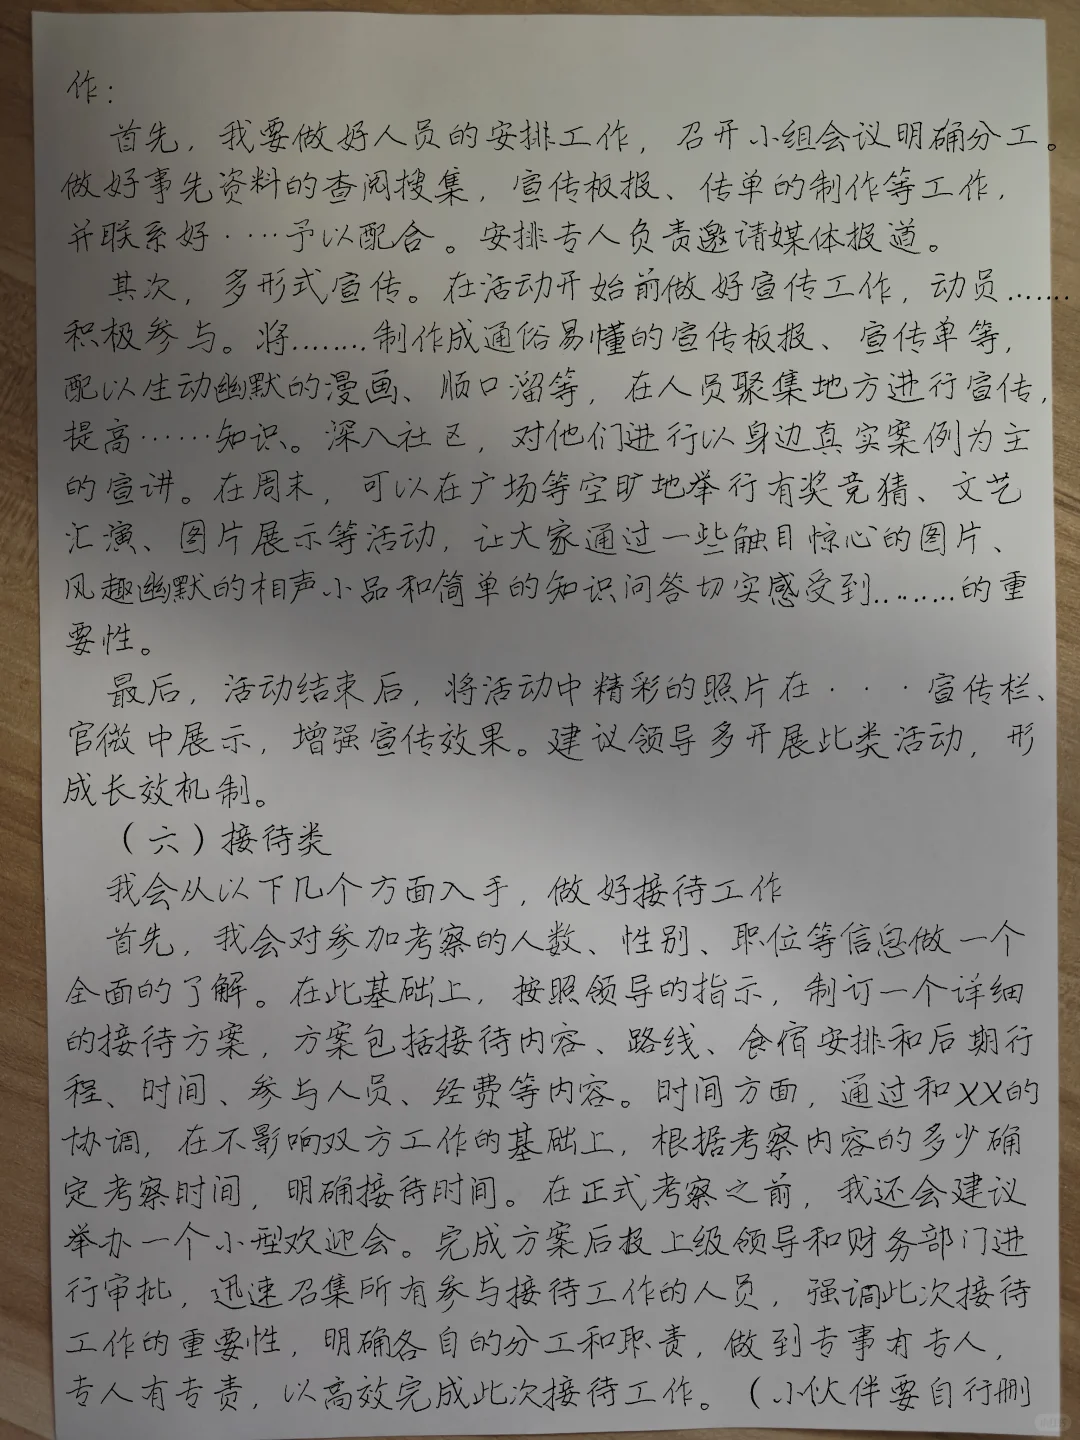 作：
首先，我要做好人员的安排工作，召开小组会议明确分工。
做好事先资料的查阅搜集，宣传板报、传单的制作等工作，
并联系好····予以配合。安排专人负责邀请媒体报道。
其次，多形式宣传。在活动开始前做好宣传工作，动员.......
积极参与。将........制作成通俗易懂的宣传板报、宣传单等，
配以生动幽默的漫画、顺口溜等，在人员聚集地方进行宣传，
提高······知识。深入社区，对他们进行以身边真实案例为主
的宣讲。在周末，可以在广场等空旷地举行有奖竞猜、文艺
汇演、图片展示等活动，让大家通过一些触目惊心的图片、
风趣幽默的相声小品和简单的知识问答切实感受到........的重
要性。
最后，活动结束后，将活动中精彩的照片在···宣传栏、
官微中展示，增强宣传效果。建议领导多开展此类活动，形
成长效机制。
（六）接待类
我会从以下几个方面入手，做好接待工作
首先，我会对参加考察的人数、性别、职位等信息做一个
全面的了解。在此基础上，按照领导的指示，制订一个详细
的接待方案，方案包括接待内容、路线、食宿安排和后期行
程、时间、参与人员、经费等内容。时间方面，通过和XX的
协调，在不影响双方工作的基础上，根据考察内容的多少确
定考察时间，明确接待时间。在正式考察之前，我还会建议
举办一个小型欢迎会。完成方案后报上级领导和财务部门进
行审批，迅速召集所有参与接待工作的人员，强调此次接待
工作的重要性，明确各自的分工和职责，做到专事有专人，
专人有专责，以高效完成此次接待工作。（小伙伴要自行删